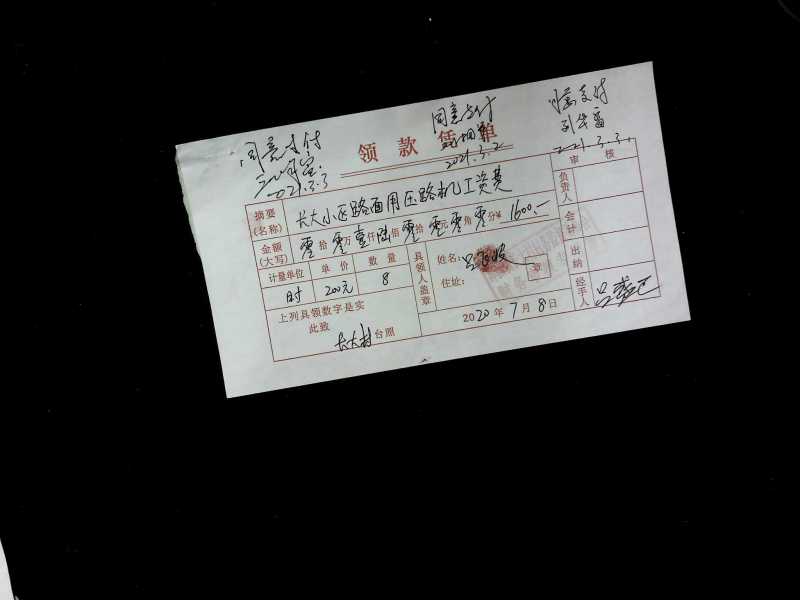 同意支付
2021.3.3
同意支付
2021.3.2
同意支付
刘华富
2021.3.3.
领款凭单
审核
摘要(名称) 长大小区路面用压路机工资费
负责人
金额(大写) 零拾零万壹仟陆佰零拾零元零角零分¥ 1600.—
会计
计量单位 单价 数量
时 200元 8
具领人盖章
姓名:
章
住址:
出纳
上列具领数字是实
此致
长大村台照
2020年7月8日
经手人